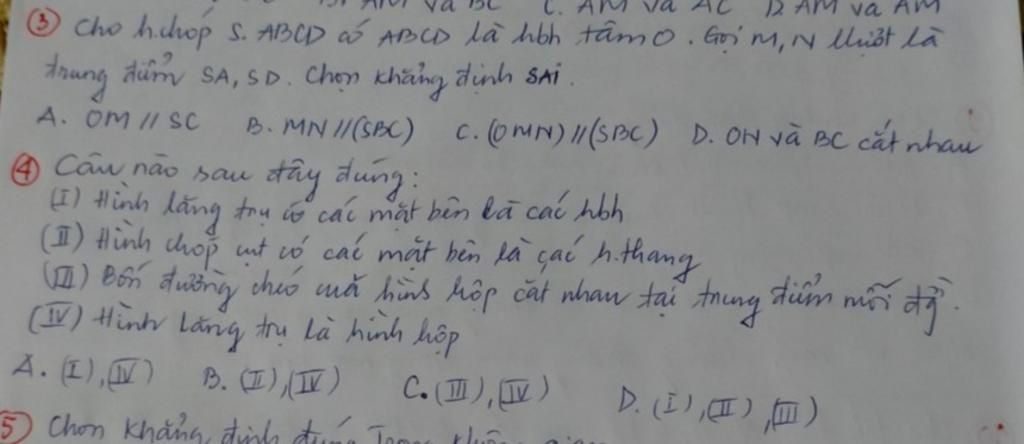 B. AM và BC C. AM và AC D. AM và AM
③ Cho h.chóp S.ABCD có ABCD là hbh tâm O. Gọi M, N lượt là
trung điểm SA, SD. Chọn khẳng định SAI.
A. OM // SC B. MN // (SBC) C. (OMN) // (SBC) D. ON và BC cắt nhau
④ Câu nào sau đây đúng:
(I) Hình lăng trụ có các mặt bên là các hbh
(II) Hình chóp cụt có các mặt bên là các h.thang
(III) Bốn đường chéo của hình hộp cắt nhau tại trung điểm mỗi đg.
(IV) Hình lăng trụ là hình hộp
A. (I), (IV) B. (II), (IV) C. (III), (IV) D. (I), (II), (III)
⑤ Chọn khẳng định đúng Trong không gian